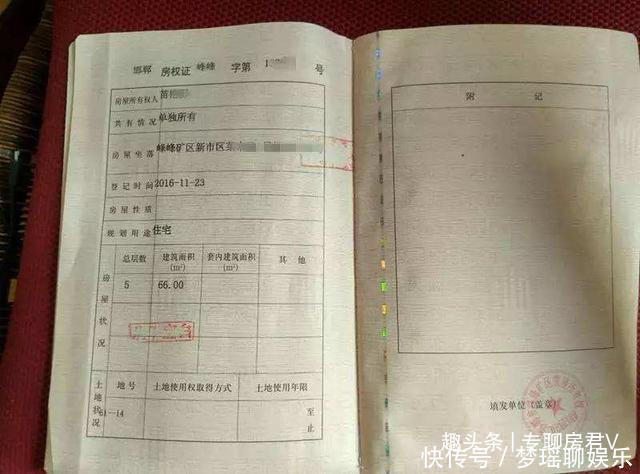 邯郸 房权证 峰峰 字第 1 号
房屋所有权人 苗
共有情况 单独所有
房屋坐落 峰峰矿区新市区东
登记时间 2016-11-23
房屋性质
规划用途 住宅
房屋状况
总层数 建筑面积(m²) 套内建筑面积(m²) 其他
5 66.00
土地状况
地号 土地使用权取得方式 土地使用年限
61-14 至
止
附 记
填发单位(盖章)
趣头条 | 专聊房君V
快传号 / 梦瑶聊娱乐